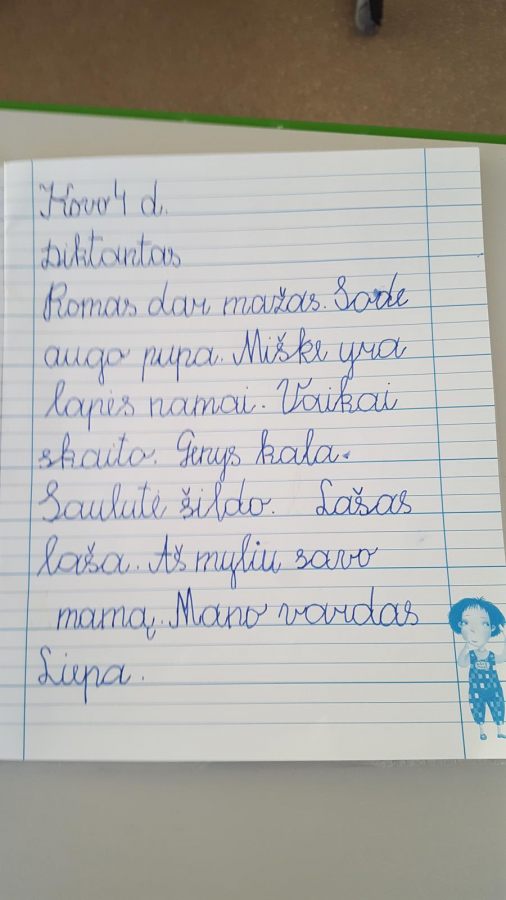 Kovo 4 d.
Diktantas
Romas dar mažas. Sode
augo pupa. Miške yra
lapės namai. Vaikai
skaito. Genys kala.
Saulutė šildo. Lašas
laša. Aš myliu savo
mamą. Mano vardas
Liepa.